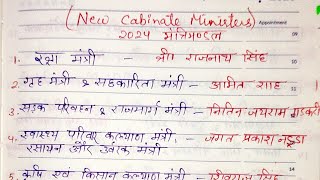 (New Cabinate Ministers)
Appointment
2024 मंत्रिमण्डल
09
1. रक्षा मंत्री - श्री राजनाथ सिंह
10
2. गृह मंत्री & सहकारिता मंत्री - अमित शाह
3. सड़क परिवहन & राजमार्ग मंत्री - नितिन जयराम गडकरी
4. स्वास्थ्य परिवार कल्याण मंत्री, - जगत प्रकाश नड्डा
रसायन और उर्वरक मंत्री
5. कृषि एवं किसान कल्याण मंत्री - शिवराज सिंह